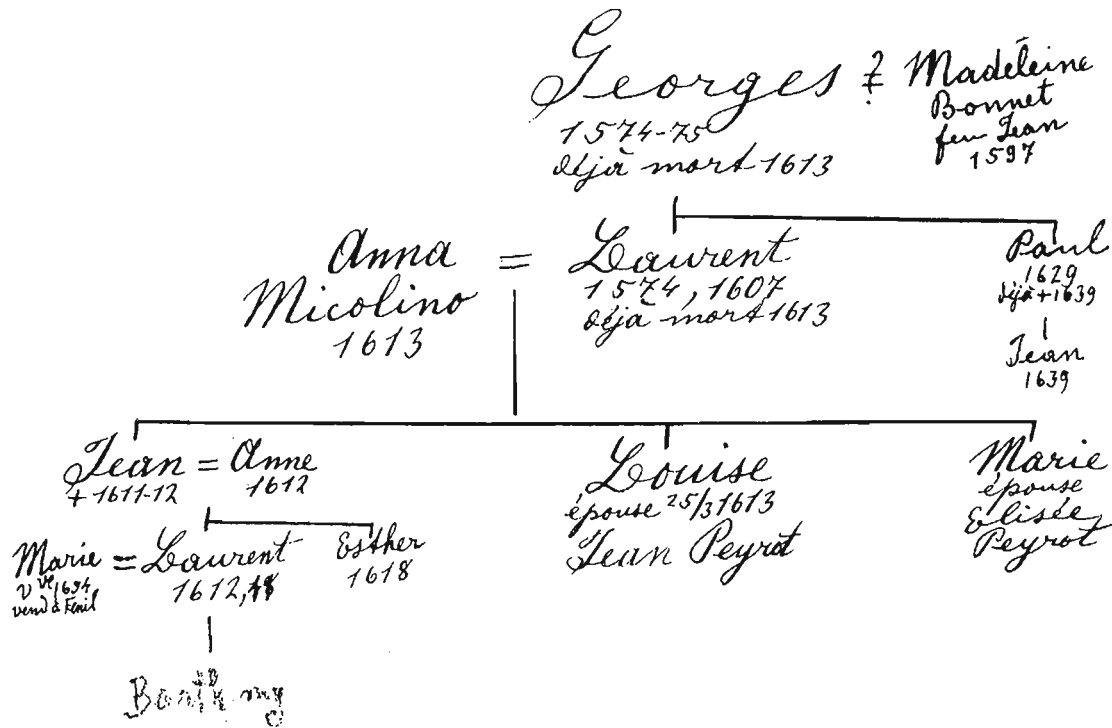 Georges ?= Madéleine
Bonnet
feu Jean
1597
1574-75
déjà mort 1613
Anna = Laurent
Micolino
1613
1574, 1607
déjà mort 1613
Paul
1629
déjà + 1639
Jean
1639
Jean = Anne
+ 1611-12
1612
Louise
épouse 25/3 1613
Jean Peyrot
Marie
épouse
Elisée
Peyrot
Marie = Laurent
vend à Fenil
1612, 18
Esther
1618